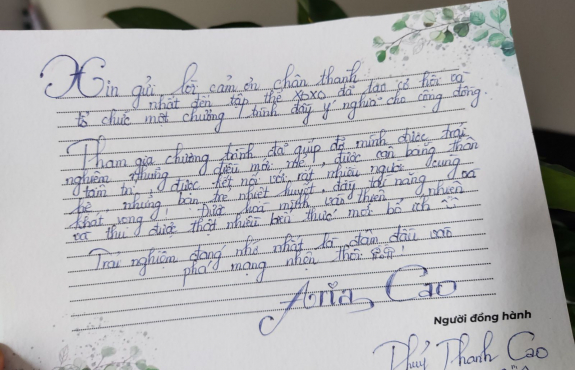 Xin gửi lời cảm ơn chân thành
nhất đến tập thể xoxo đã tạo cơ hội và
tổ chức một chương trình đầy ý nghĩa cho cộng đồng
Tham gia chương trình đã giúp đỡ mình được trải
nghiệm những điều mới mẻ, được cân bằng thân
tâm trí, được kết nối với rất nhiều người cùng
bè những bạn trẻ nhiệt huyết, đầy tài năng và
khát vọng! Được hoà mình vào thiên nhiên
và thu được thật nhiều kiến thức mới bổ ích
Trải nghiệm đáng nhớ nhất là đâm đầu vào
phá mạng nhện thôi
Aria Cao
Người đồng hành
Thuý Thanh Cao